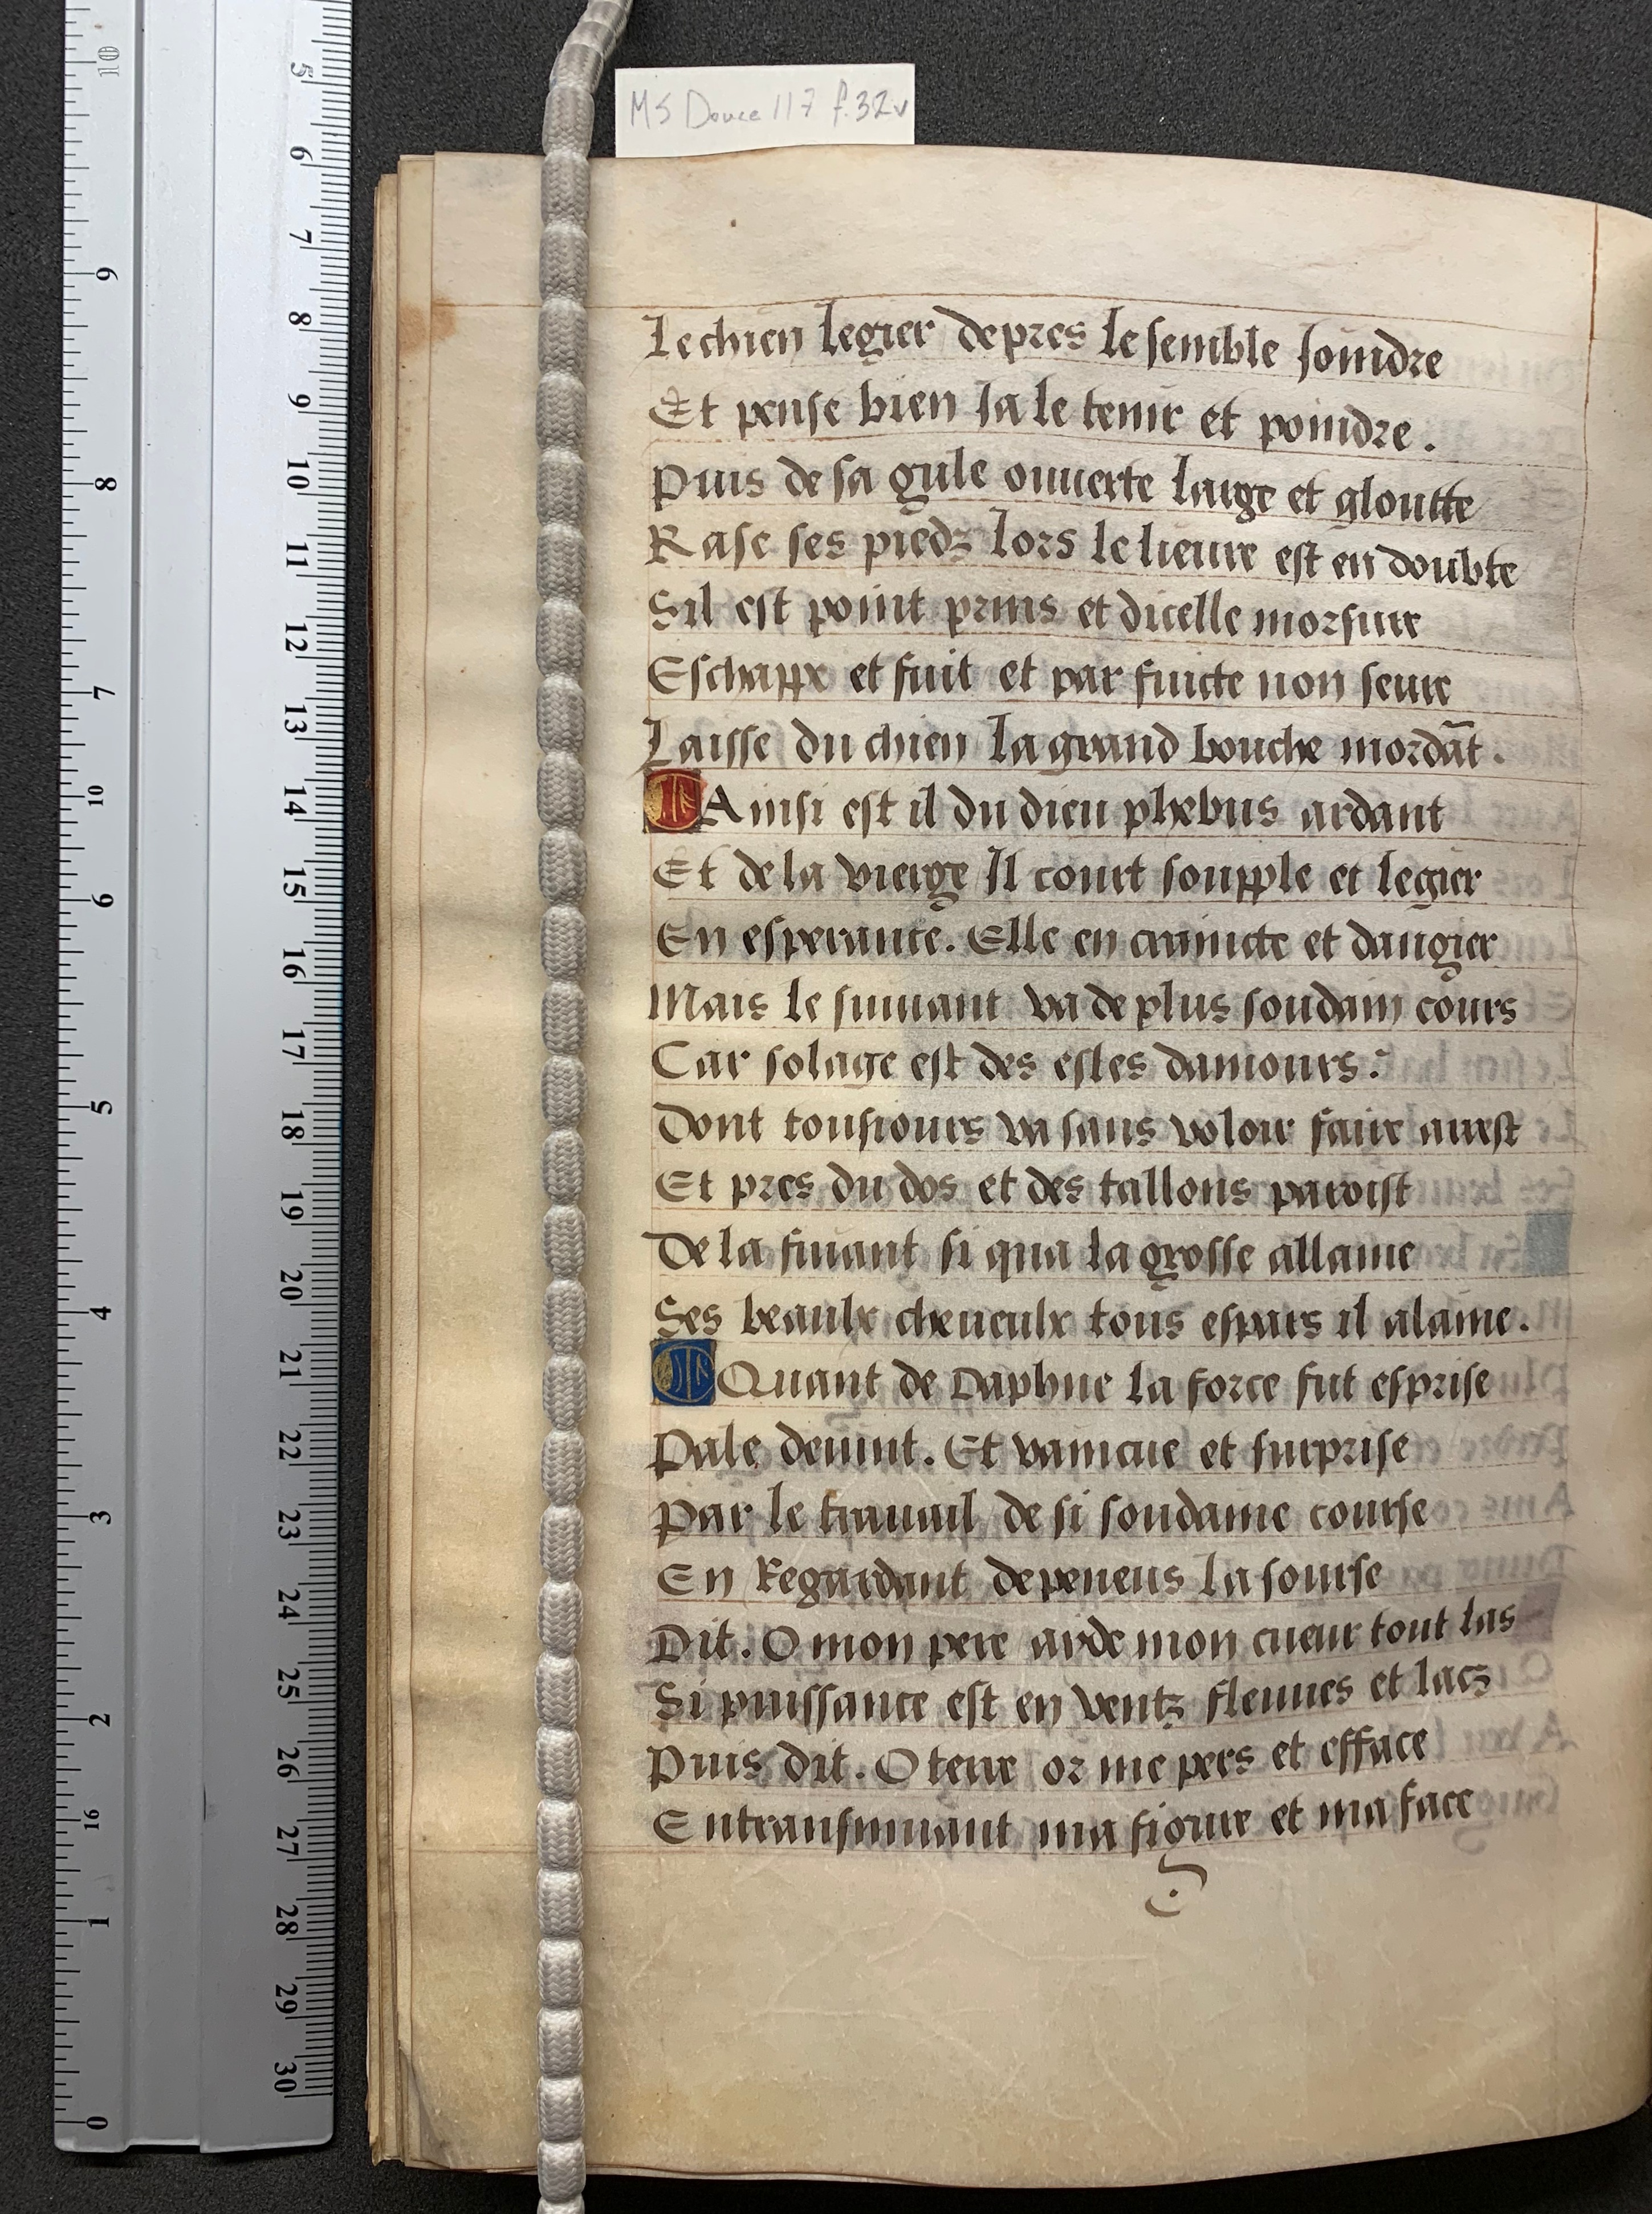 MS Douce 117 f.32v
Le chien legier de pres le semble ioindre
Et pense bien Ia le tenir et poindre.
Puis de sa gule ouuerte large et gloutte
Rase ses piedz lors le lieure est en doubte
Sil est point prins et dicelle morsure
Eschappe et fuit et par fuicte non seure
Laisse du chien la grand bouche mordãt.
Ainsi est il du dieu phebus ardant
Et de la vierge Il court soupple et legier
En esperance. Elle en craincte et dangier
Mais le suiuant va de plus soudain cours
Car solage est des esles damours:
Dont tousiours va sans voloir faire arrest
Et pres du dos et des tallons paroist
De la fuiant si qua la grosse allaine
Ses beaulx cheueulx tous espars il alaine.
Quant de Daphne la force fut esprise
Pale deuint. Et vaincue et surprise
Par le trauail de si soudaine course
En Regardant de peneus la sourse
Dit. O mon pere aide mon cueur tout las
Si puissance est en ventz fleuues et lacz
Puis dit. O terre or me pers et efface
En transmuant ma figure et ma face